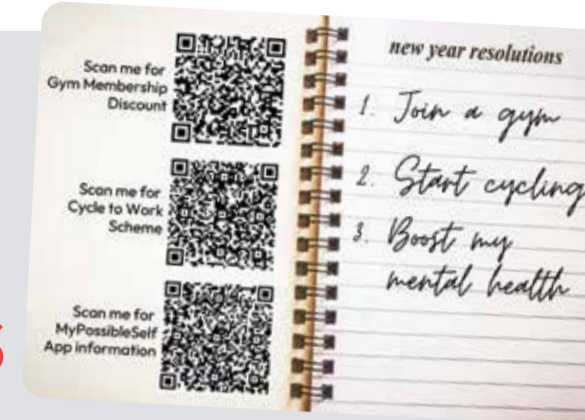 Scan me for
Gym Membership
Discount
Scan me for
Cycle to Work
Scheme
Scan me for
MyPossibleSelf
App information
new year resolutions
1. Join a gym
2. Start cycling
3. Boost my
mental health